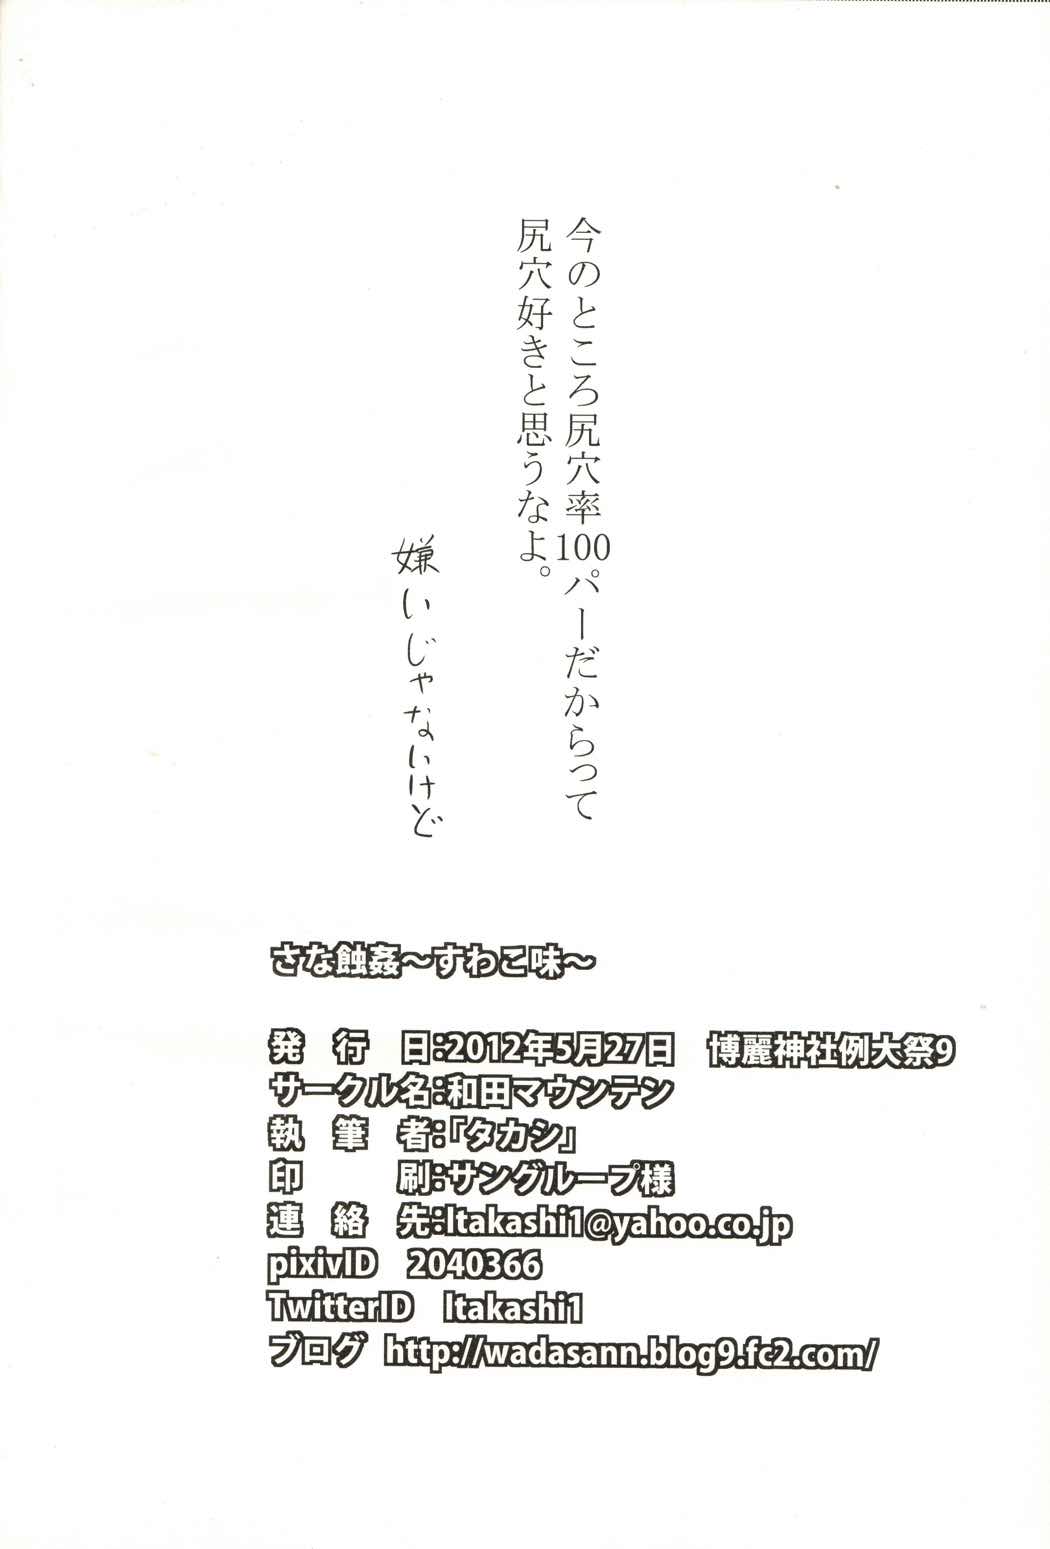 今のところ尻穴率100パーだからって
尻穴好きと思うなよ。
嫌いじゃないけど
さな蝕姦～すわこ味～
発　行　日：2012年5月27日　博麗神社例大祭9
サークル名：和田マウンテン
執　筆　者：『タカシ』
印　　　刷：サングループ様
連　絡　先：ltakashi1@yahoo.co.jp
pixivID　2040366
TwitterID　ltakashi1
ブログ　http://wadasann.blog9.fc2.com/